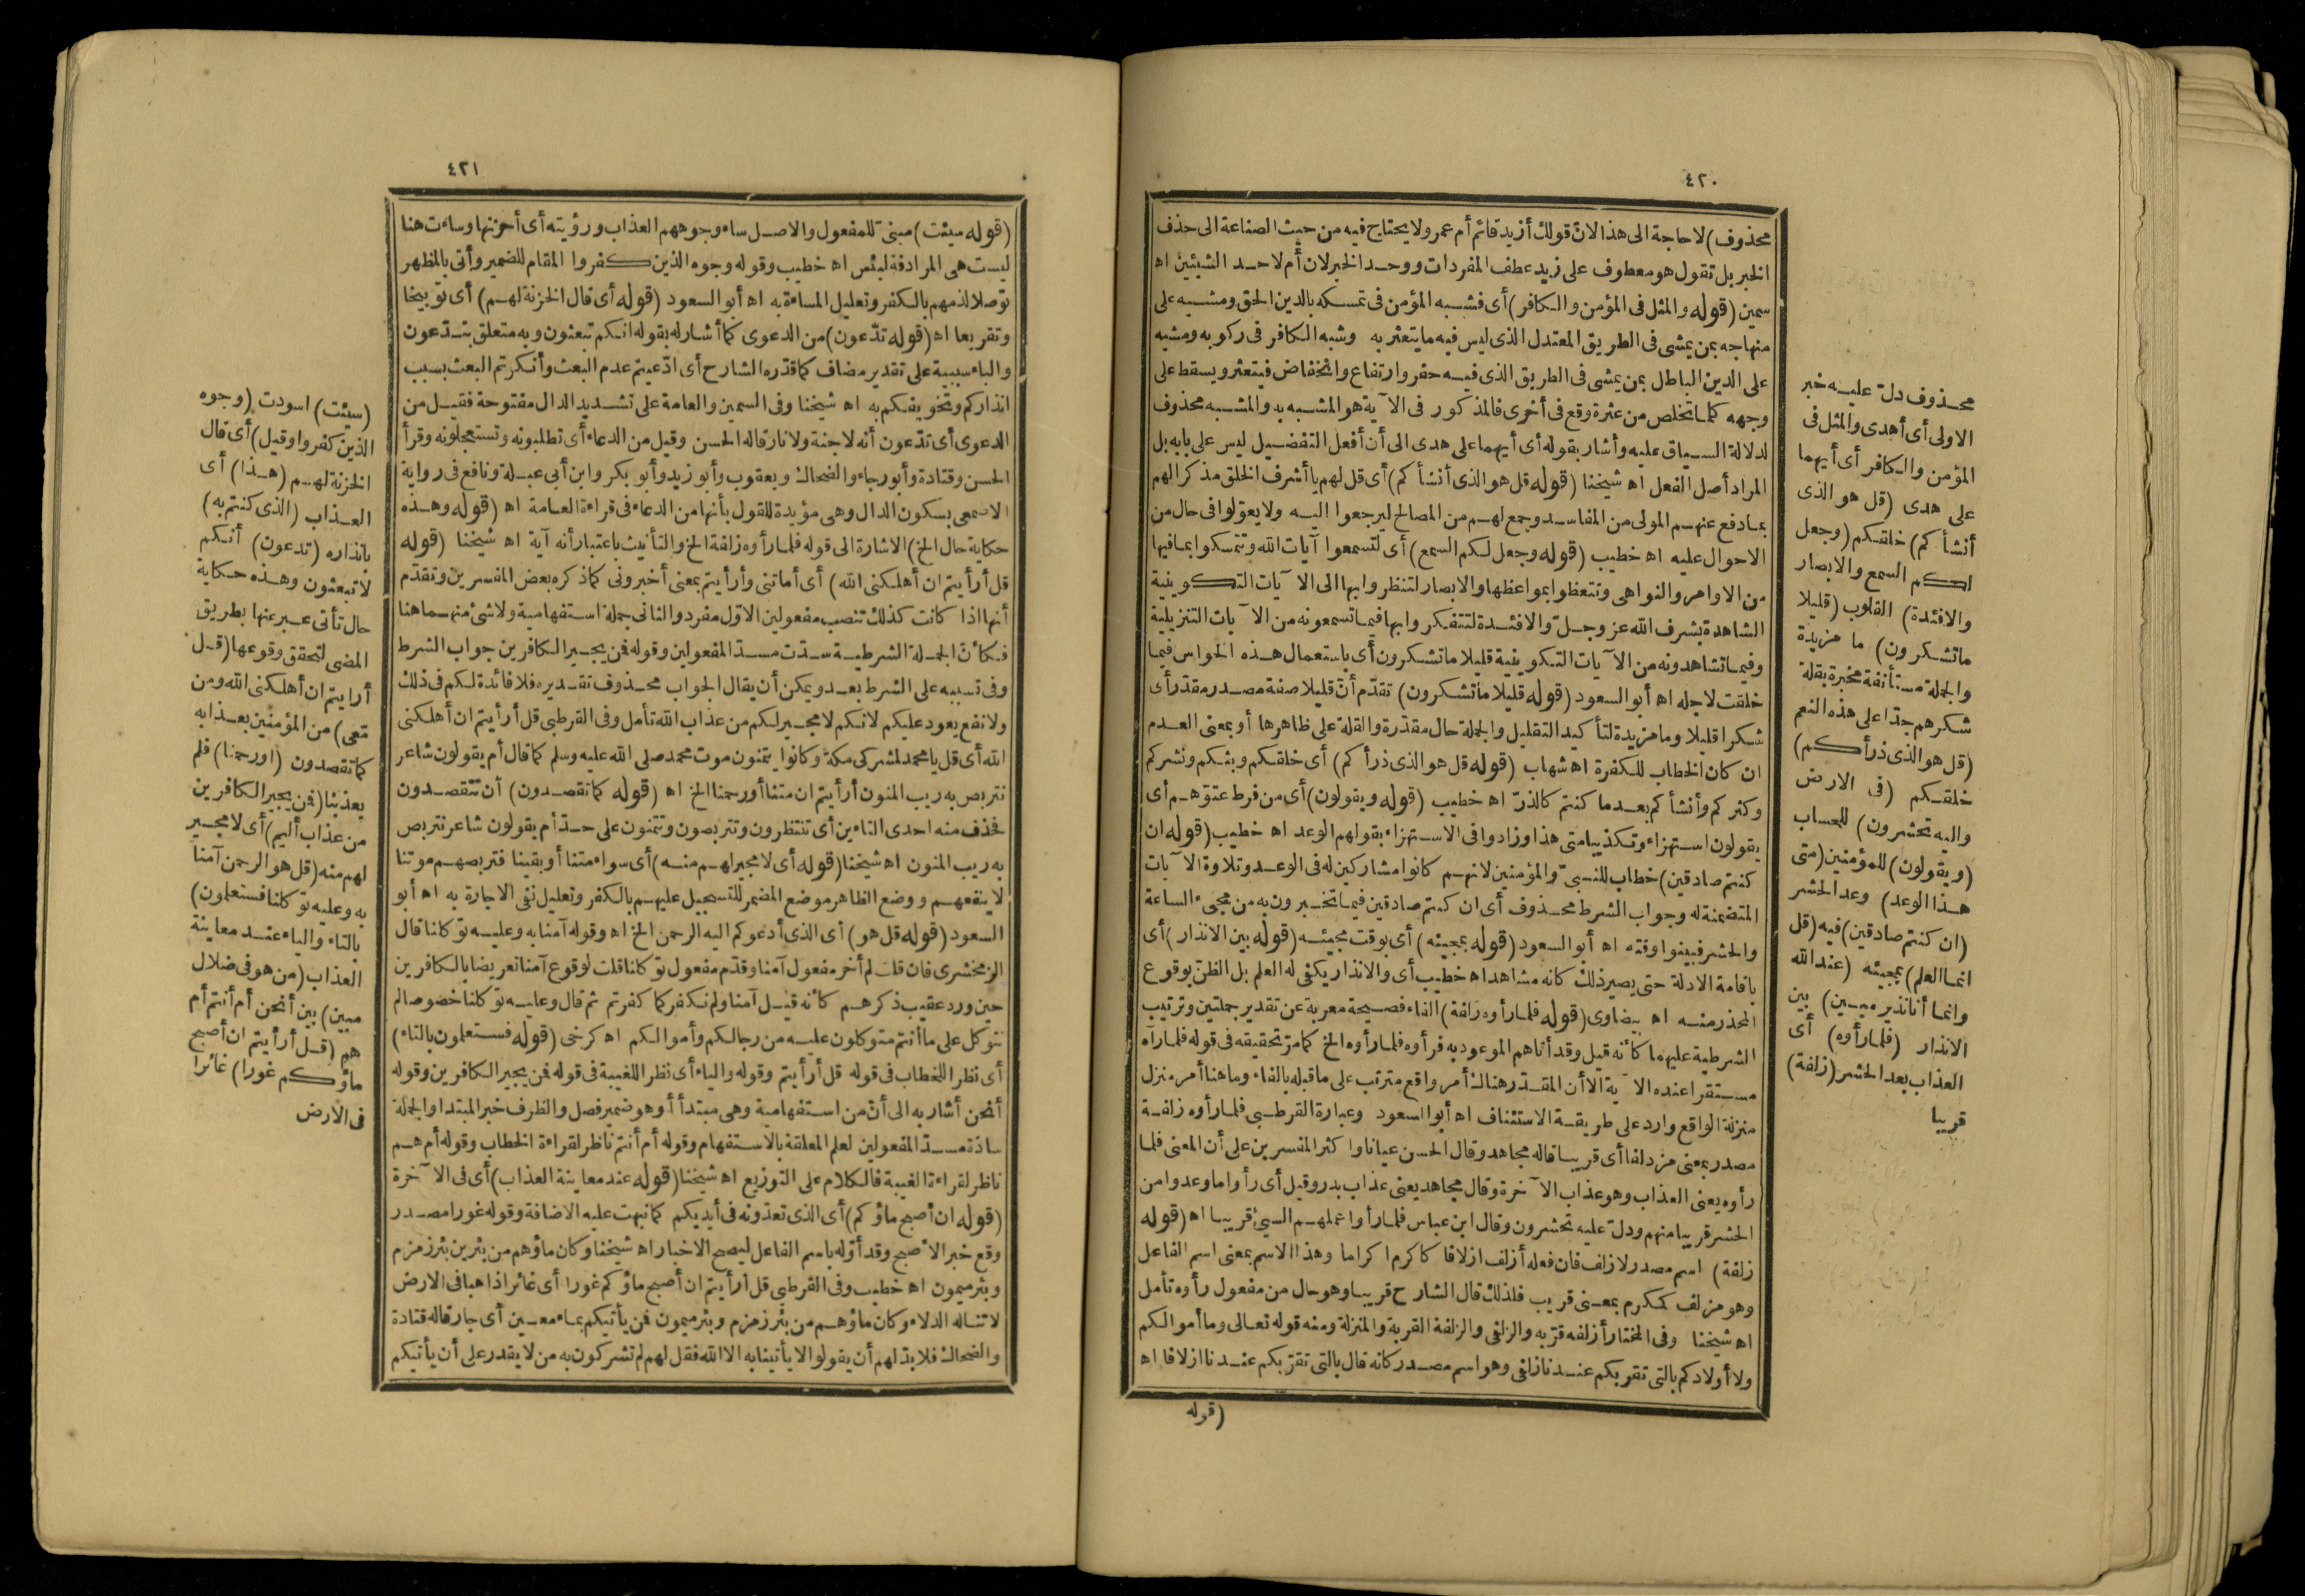 ٤٢٠
محذوف) لاحاجة الى هذا لانّ قولك أزيد قائم أم عمرو ولا يحتاج فيه من حيث الصناعة الى حذف
الخبر بل تقول هو معطوف على زيد عطف المفردات ووحد الخبر لان أم لاحد الشيئين اه
سمين (قوله والمثل فى المؤمن والكافر) أى فشبه المؤمن فى تمسكه بالدين الحق ومشيه على
منهاجه بمن يمشى فى الطريق المعتدل الذى ليس فيه ما يتعثر به وشبه الكافر فى ركوبه ومشيه
على الدين الباطل بمن يمشى فى الطريق الذى فيه حفر وارتفاع وانخفاض فيتعثر ويسقط على
وجهه كلما تخلص من عثرة وقع فى أخرى فالمذكور فى الآية هو المشبه به والمشبه محذوف
لدلالة السياق عليه وأشار بقوله أى أيهما على هدى الى أن أفعل التفضيل ليس على بابه بل
المراد أصل الفعل اه شيخنا (قوله قل هو الذى أنشأكم) أى قل لهم يا أشرف الخلق مذكرا لهم
بما دفع عنهم المولى من المفاسد وجمع لهم من المصالح ليرجعوا اليه ولا يعوّلوا فى حال من
الاحوال عليه اه خطيب (قوله وجعل لكم السمع) أى لتسمعوا آيات الله وتتمسكوا بما فيها
من الاوامر والنواهى وتتعظوا بمواعظها والابصار لتنظروا بها الى الآيات التكوينية
الشاهدة بشرف الله عز وجلّ والافئدة لتتفكروا بها فيما تسمعونه من الآيات التنزيلية
وفيما تشاهدونه من الآيات التكوينية قليلا ما تشكرون أى باستعمال هذه الحواس فيما
خلقت لاجله اه أبو السعود (قوله قليلا ما تشكرون) تقدّم أنّ قليلا صفة مصدر مقدّر أى
شكرا قليلا وما مزيدة لتأكيد التقليل والجملة حال مقدّرة والقلة على ظاهرها أو بمعنى العدم
ان كان الخطاب للكفرة اه شهاب (قوله قل هو الذى ذرأكم) أى خلقكم وبثكم ونشركم
وكثركم وأنشأكم بعدما كنتم كالذرّ اه خطيب (قوله ويقولون) أى من فرط عتوّهم أى
يقولون استهزاء وتكذيبا متى هذا وزادوا فى الاستهزاء بقولهم الوعد اه خطيب (قوله ان
كنتم صادقين) خطاب للنبىّ والمؤمنين لانهم كانوا مشاركين له فى الوعد وتلاوة الآيات
المتضمنة له وجواب الشرط محذوف أى ان كنتم صادقين فيما تخبرون به من مجىء الساعة
والحشر فبينوا وقته اه أبو السعود (قوله بمجيئه) أى بوقت مجيئه (قوله بين الانذار) أى
باقامة الادلة حتى يصير ذلك كأنه مشاهد اه خطيب أى والانذار يكفى له العلم بل الظنّ بوقوع
المحذر منه اه بيضاوى (قوله فلما رأوه زلفة) الفاء فصيحة معربة عن تقدير جملتين وترتيب
الشرطية عليهما كأنه قيل وقد أتاهم الموعود به فرأوه فلما رأوه الخ كما مرّ تحقيقه فى قوله فلما رآه
مستقرا عنده الآية الا أن المقدّر هناك أمر واقع مترتب على ما قبله بالفاء وما هنا أمر منزل
منزلة الواقع وارد على طريقة الاستئناف اه أبو السعود وعبارة القرطبى فلما رأوه زلفة
مصدر بمعنى مزدلفا أى قريبا قاله مجاهد وقال الحسن عيانا وأكثر المفسرين على أن المعنى فلما
رأوه يعنى العذاب وهو عذاب الآخرة وقال مجاهد يعنى عذاب بدر وقيل أى رأوا ما وعدوا من
الحشر قريبا منهم ودلّ عليه تحشرون وقال ابن عباس فلما رأوا عملهم السيئ قريبا اه (قوله
زلفة) اسم مصدر لازلف فان فعله أزلف ازلافا كاكرم اكراما وهذا الاسم بمعنى اسم الفاعل
وهو مزلف كمكرم بمعنى قريب فلذلك قال الشارح قريبا وهو حال من مفعول رأوه تأمل
اه شيخنا وفى المختار أزلفه قرّبه والزلفى والزلفة القربة والمنزلة ومنه قوله تعالى وما أموالكم
ولا أولادكم بالتى تقربكم عندنا زلفى وهو اسم مصدر كأنه قال بالتى تقرّبكم عندنا ازلافا اه
(قوله
محذوف دلّ عليه خبر
الاولى أى أهدى والمثل فى
المؤمن والكافر أى أيهما
على هدى (قل هو الذى
أنشأكم) خلقكم (وجعل
لكم السمع والابصار
والافئدة) القلوب (قليلا
ما تشكرون) ما مزيدة
والجملة مستأنفة مخبرة بقلة
شكرهم جدّا على هذه النعم
(قل هو الذى ذرأكم)
خلقكم (فى الارض
واليه تحشرون) للحساب
(ويقولون) للمؤمنين (متى
هذا الوعد) وعد الحشر
(ان كنتم صادقين) فيه (قل
انما العلم) بمجيئه (عند الله
وانما أنا نذير مبين) بين
الانذار (فلما رأوه) أى
العذاب بعد الحشر (زلفة)
قريبا
٤٢١
(قوله سيئت) مبنىّ للمفعول والاصل ساء وجوههم العذاب ورؤيته أى أحزنها وساءت هنا
ليست هى المرادفة لبئس اه خطيب وقوله وجوه الذين كفروا المقام للضمير وأتى بالمظهر
توصلا لذمهم بالكفر وتعليل المساءة به اه أبو السعود (قوله أى قال الخزنة لهم) أى توبيخا
وتقريعا اه (قوله تدّعون) من الدعوى كما أشار له بقوله انكم تبعثون وبه متعلق بتدّعون
والباء سببية على تقدير مضاف كما قدّره الشارح أى ادّعيتم عدم البعث وأنكرتم البعث بسبب
انذاركم وتخويفكم به اه شيخنا وفى السمين والعامة على تشديد الدال مفتوحة فقيل من
الدعوى أى تدّعون أنه لاجنة ولا نار قاله الحسن وقيل من الدعاء أى تطلبونه وتستعجلونه وقرأ
الحسن وقتادة وأبو رجاء والضحاك ويعقوب وأبو زيد وأبو بكر وابن أبى عبلة ونافع فى رواية
الاصمعى بسكون الدال وهى مؤيدة للقول بأنها من الدعاء فى قراءة العامة اه (قوله وهذه
حكاية حال الخ) الاشارة الى قوله فلما رأوه زلفة الخ والتأنيث باعتبار أنه آية اه شيخنا (قوله
قل أرأيتم ان أهلكنى الله) أى أماتنى وأرأيتم بمعنى أخبرونى كما ذكره بعض المفسرين وتقدّم
أنها اذا كانت كذلك تنصب مفعولين الاوّل مفرد والثانى جملة استفهامية ولا شئ منهما هنا
فكأنّ الجملة الشرطية سدّت مسدّ المفعولين وقوله فمن يجير الكافرين جواب الشرط
وفى تسببه على الشرط بعد ويمكن أن يقال الجواب محذوف تقديره فلا فائدة لكم فى ذلك
ولا نفع يعود عليكم لانكم لا مجير لكم من عذاب الله تأمل وفى القرطبى قل أرأيتم ان أهلكنى
الله أى قل يا محمد لمشركى مكة وكانوا يتمنون موت محمد صلى الله عليه وسلم كما قال أم يقولون شاعر
نتربص به ريب المنون أرأيتم ان متنا أو رحمنا الخ اه (قوله كما تقصدون) أن تتقصدون
فحذف منه احدى التاءين أى تنتظرون وتتربصون وتتمنون على حدّ أم يقولون شاعر نتربص
به ريب المنون اه شيخنا (قوله أى لا مجير لهم منه) أى سواء متنا أو بقينا فتربصهم موتنا
لا ينفعهم ووضع الظاهر موضع المضمر للتسجيل عليهم بالكفر وتعليل نفى الاجارة به اه أبو
السعود (قوله قل هو) أى الذى أدعوكم اليه الرحمن الخ اه وقوله آمنا به وعليه توكلنا قال
الزمخشرى فان قلت لم أخر مفعول آمنا وقدّم مفعول توكلنا قلت لوقوع آمنا تعريضا بالكافرين
حين ورد عقيب ذكرهم كأنه قيل آمنا ولم نكفر كما كفرتم ثم قال وعليه توكلنا خصوصا لم
نتوكل على ما أنتم متوكلون عليه من رجالكم وأموالكم اه كرخى (قوله فستعلمون بالتاء)
أى نظرا للخطاب فى قوله قل أرأيتم وقوله والياء أى نظرا للغيبة فى قوله فمن يجير الكافرين وقوله
أنحن أشار به الى أنّ من استفهامية وهى مبتدأ أو هو ضمير فصل والظرف خبر المبتدا والجملة
سادّة مسدّ المفعولين لعلم المعلقة بالاستفهام وقوله أم أنتم ناظر لقراءة الخطاب وقوله أم هم
ناظر لقراءة الغيبة فالكلام على التوزيع اه شيخنا (قوله عند معاينة العذاب) أى فى الآخرة
(قوله ان أصبح ماؤكم) أى الذى تعدّونه فى أيديكم كما نبهت عليه الاضافة وقوله غورا مصدر
وقع خبرا لاصبح وقد أوّله باسم الفاعل ليصح الاخبار اه شيخنا وكان ماؤهم من بئرين بئر زمزم
وبئر ميمون اه خطيب وفى القرطبى قل أرأيتم ان أصبح ماؤكم غورا أى غائرا ذاهبا فى الارض
لا تناله الدلاء وكان ماؤهم من بئر زمزم وبئر ميمون فمن يأتيكم بماء معين أى جار قاله قتادة
والضحاك فلا بدّ لهم أن يقولوا لا يأتينا به الا الله فقل لهم لم تشركون به من لا يقدر على أن يأتيكم
(سيئت) اسودت (وجوه
الذين كفروا وقيل) أى قال
الخزنة لهم (هذا) أى
العذاب (الذى كنتم به)
بانذاره (تدعون) أنكم
لا تبعثون وهذه حكاية
حال تأتى عبر عنها بطريق
المضى لتحقق وقوعها (قل
أرأيتم ان أهلكنى الله ومن
معى) من المؤمنين بعذابه
كما تقصدون (أو رحمنا) فلم
يعذبنا (فمن يجير الكافرين
من عذاب أليم) أى لا مجير
لهم منه (قل هو الرحمن آمنا
به وعليه توكلنا فستعلمون)
بالتاء والياء عند معاينة
العذاب (من هو فى ضلال
مبين) بين أنحن أم أنتم أم
هم (قل أرأيتم ان أصبح
ماؤكم غورا) غائرا
فى الارض